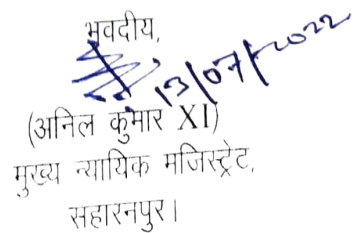 भवदीय,
13/07/2022
(अनिल कुमार XI)
मुख्य न्यायिक मजिस्ट्रेट,
सहारनपुर।